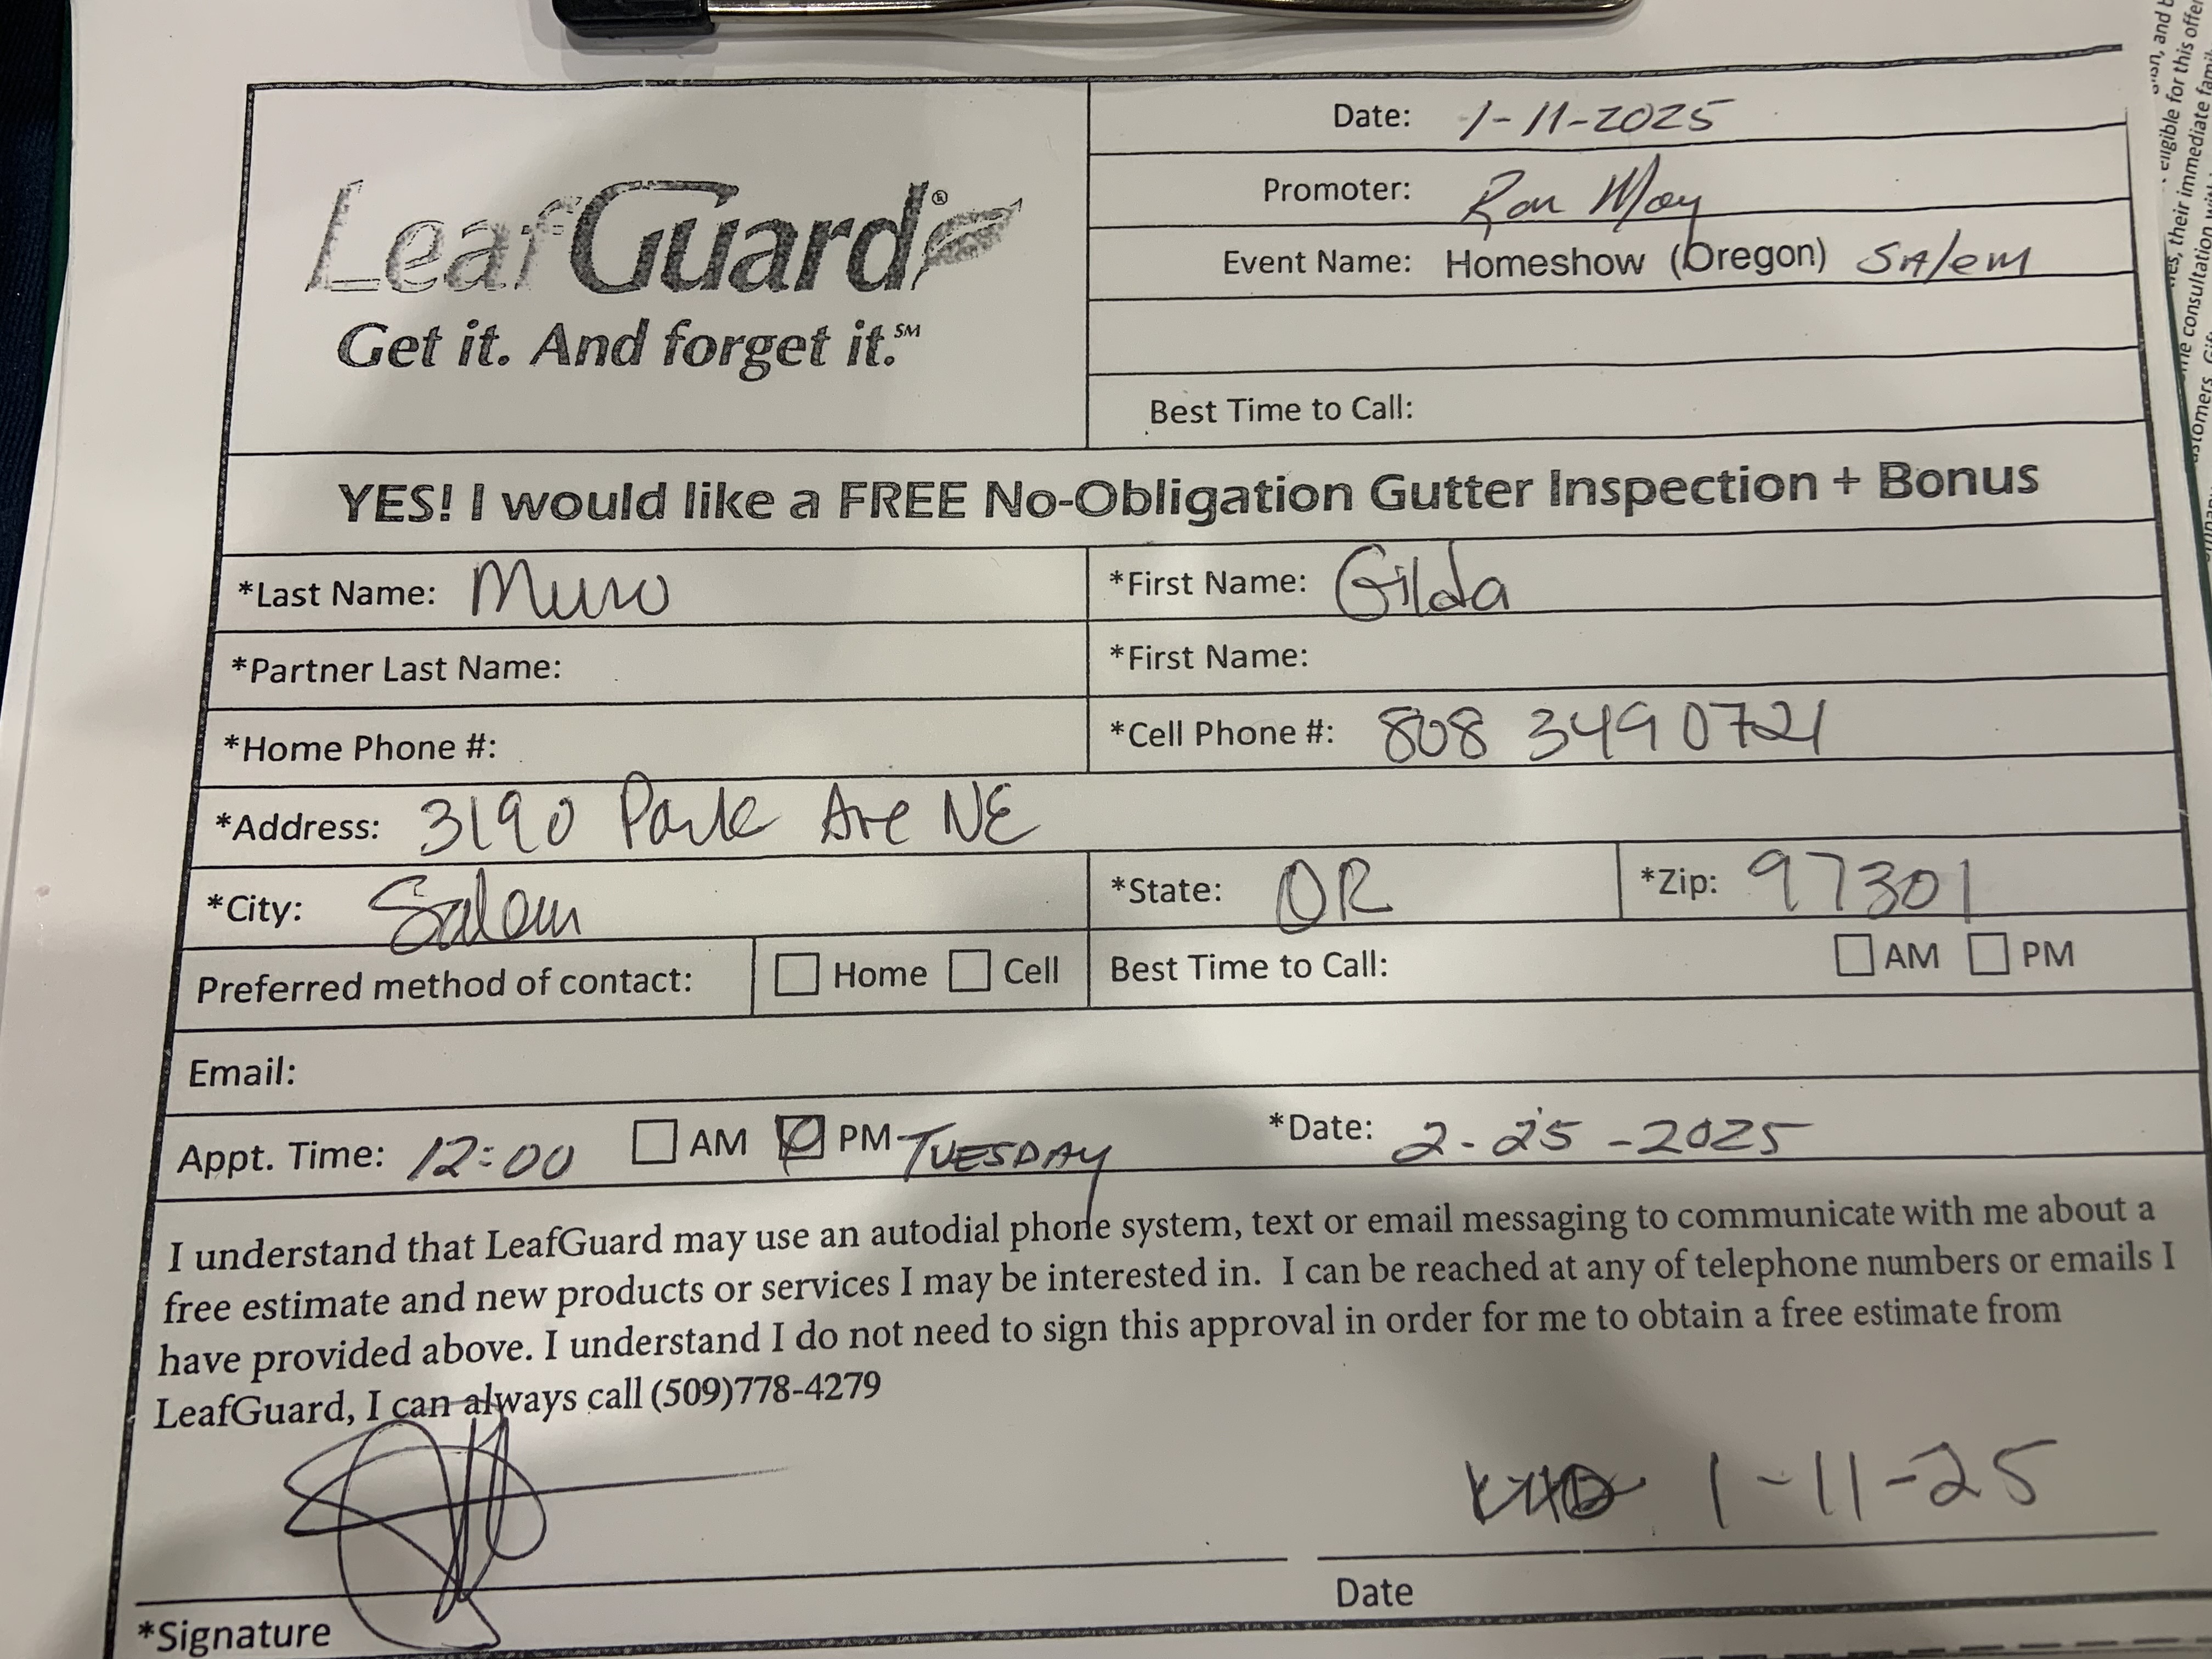 LeafGuard®
Get it. And forget it.℠
Date: 1-11-2025
Promoter: Ron May
Event Name: Homeshow (Oregon) SAlem
Best Time to Call:
YES! I would like a FREE No-Obligation Gutter Inspection + Bonus
*Last Name: Muro *First Name: Gilda
*Partner Last Name: *First Name:
*Home Phone #: *Cell Phone #: 808 349 0721
*Address: 3190 Park Ave NE
*City: Salem *State: OR *Zip: 97301
Preferred method of contact: Home Cell Best Time to Call: AM PM
Email:
Appt. Time: 12:00 AM PM TUESDAY *Date: 2-25-2025
I understand that LeafGuard may use an autodial phone system, text or email messaging to communicate with me about a
free estimate and new products or services I may be interested in. I can be reached at any of telephone numbers or emails I
have provided above. I understand I do not need to sign this approval in order for me to obtain a free estimate from
LeafGuard, I can always call (509)778-4279
1-11-25
*Signature Date
eligible for this offer
their immediate
consultation